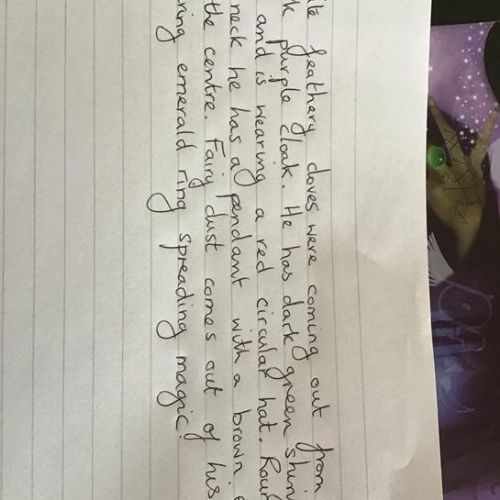 ite feathery doves were coming out from
k purple cloak. He has dark green shin
and is wearing a red circular hat. Rou
neck he has a pendant with a brown
the centre. Fairy dust comes out of his
ring emerald ring spreading magic!